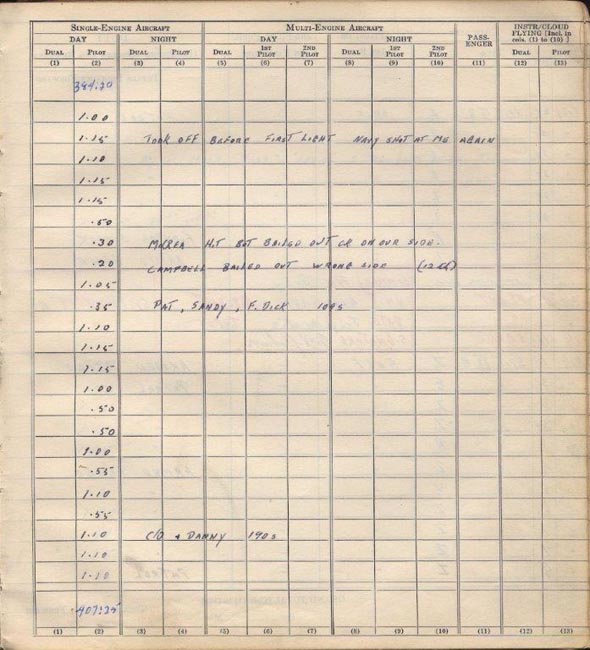 SINGLE-ENGINE AIRCRAFT MULTI-ENGINE AIRCRAFT PASS-ENGER INSTR/CLOUD FLYING (Incl. in cols. (1) to (10) )
DAY NIGHT DAY NIGHT
DUAL PILOT DUAL PILOT DUAL 1ST PILOT 2ND PILOT DUAL 1ST PILOT 2ND PILOT DUAL PILOT
(1) (2) (3) (4) (5) (6) (7) (8) (9) (10) (11) (12) (13)
1.00
1.15 TOOK OFF BEFORE FIRST LIGHT NAVY SHOT AT ME AGAIN
1.10
1.15
1.15
.50
.30 McCREA HIT BUT BAILED OUT OK ON OUR SIDE.
.20 CAMPBELL BAILED OUT WRONG SIDE
1.05
.35 PAT, SANDY, F. DICK 109s
1.10
1.15
1.15
1.00
.50
.50
1.00
.55
1.10
.55
1.10 C/O + DANNY 190s
1.10
1.10
407:25
(1) (2) (3) (4) (5) (6) (7) (8) (9) (10) (11) (12) (13)